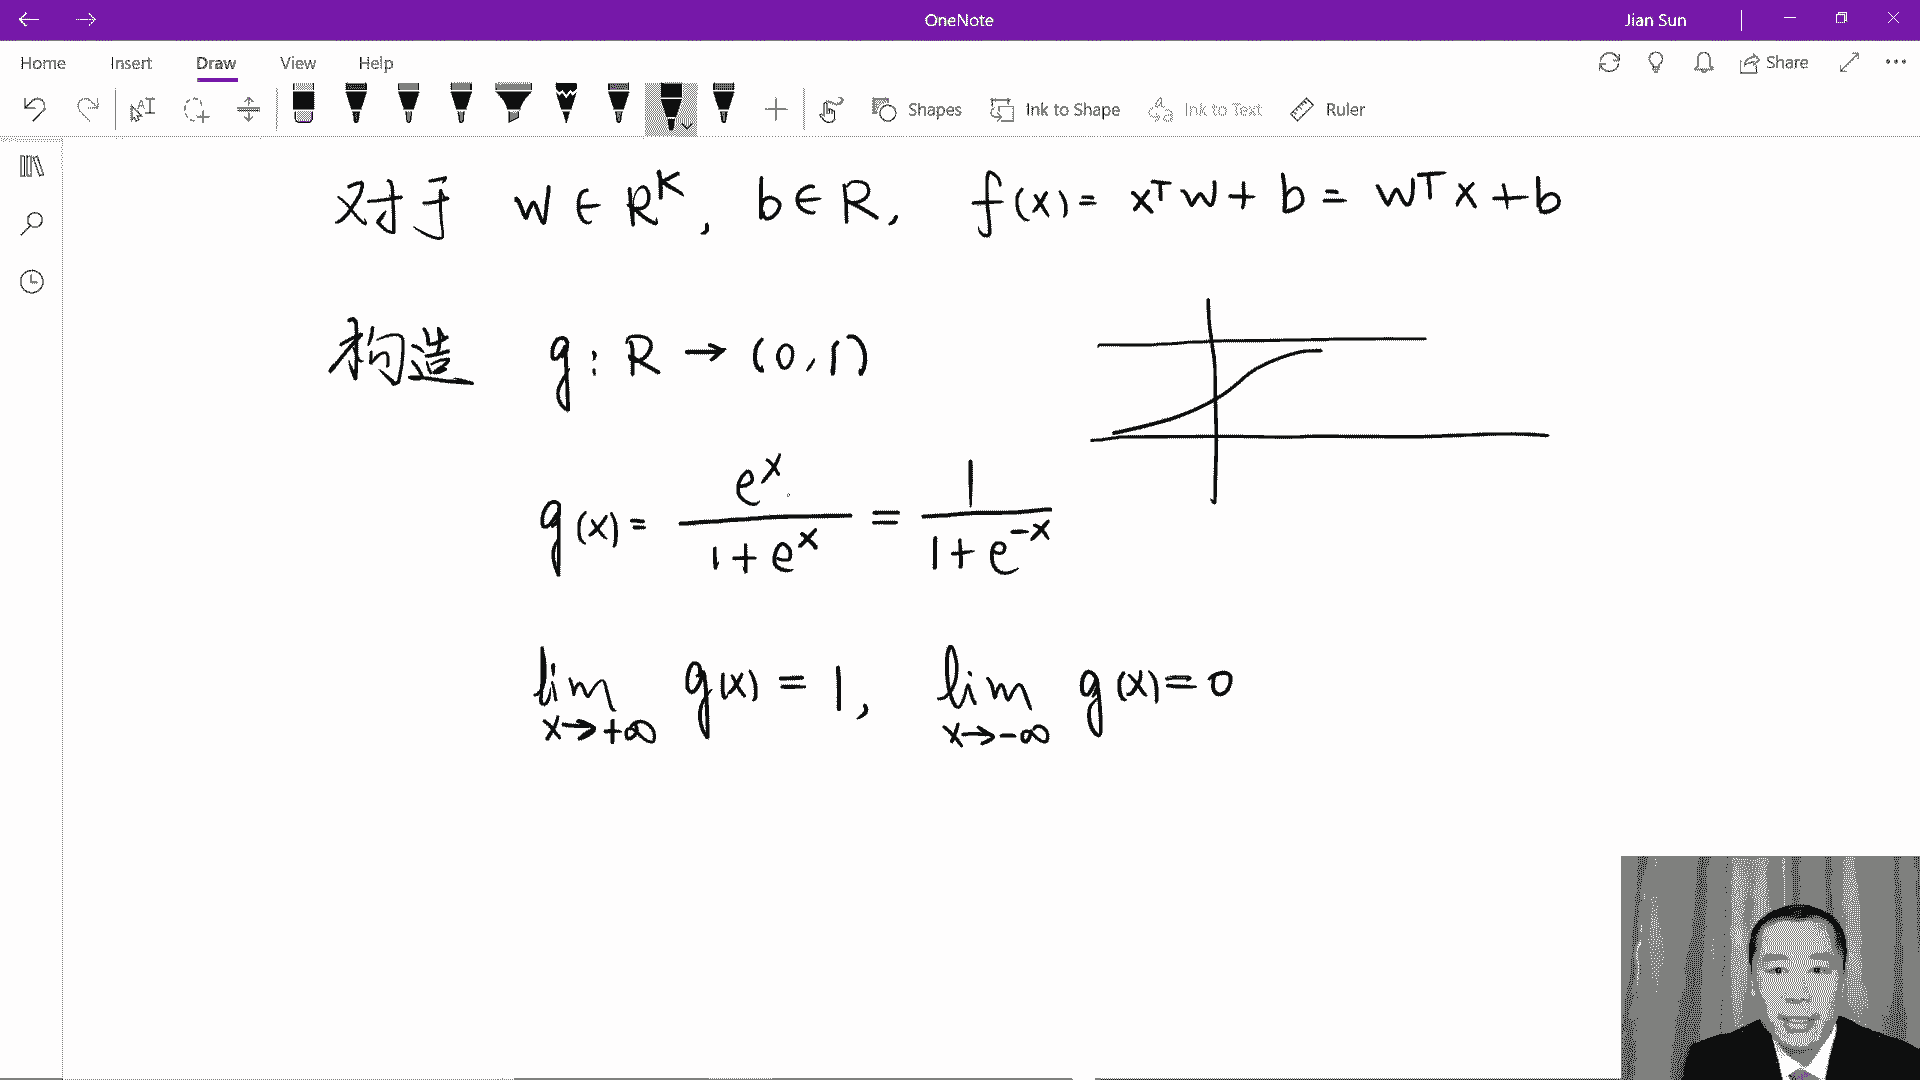 OneNote
Jian Sun
Home Insert Draw View Help
Share
Shapes Ink to Shape Ink to Text Ruler
对于 w ∈ R^K, b ∈ R, f(x) = x^T w + b = w^T x + b
构造 g: R → (0,1)
g(x) = e^x / (1 + e^x) = 1 / (1 + e^{-x})
lim_{x→+∞} g(x) = 1, lim_{x→-∞} g(x) = 0